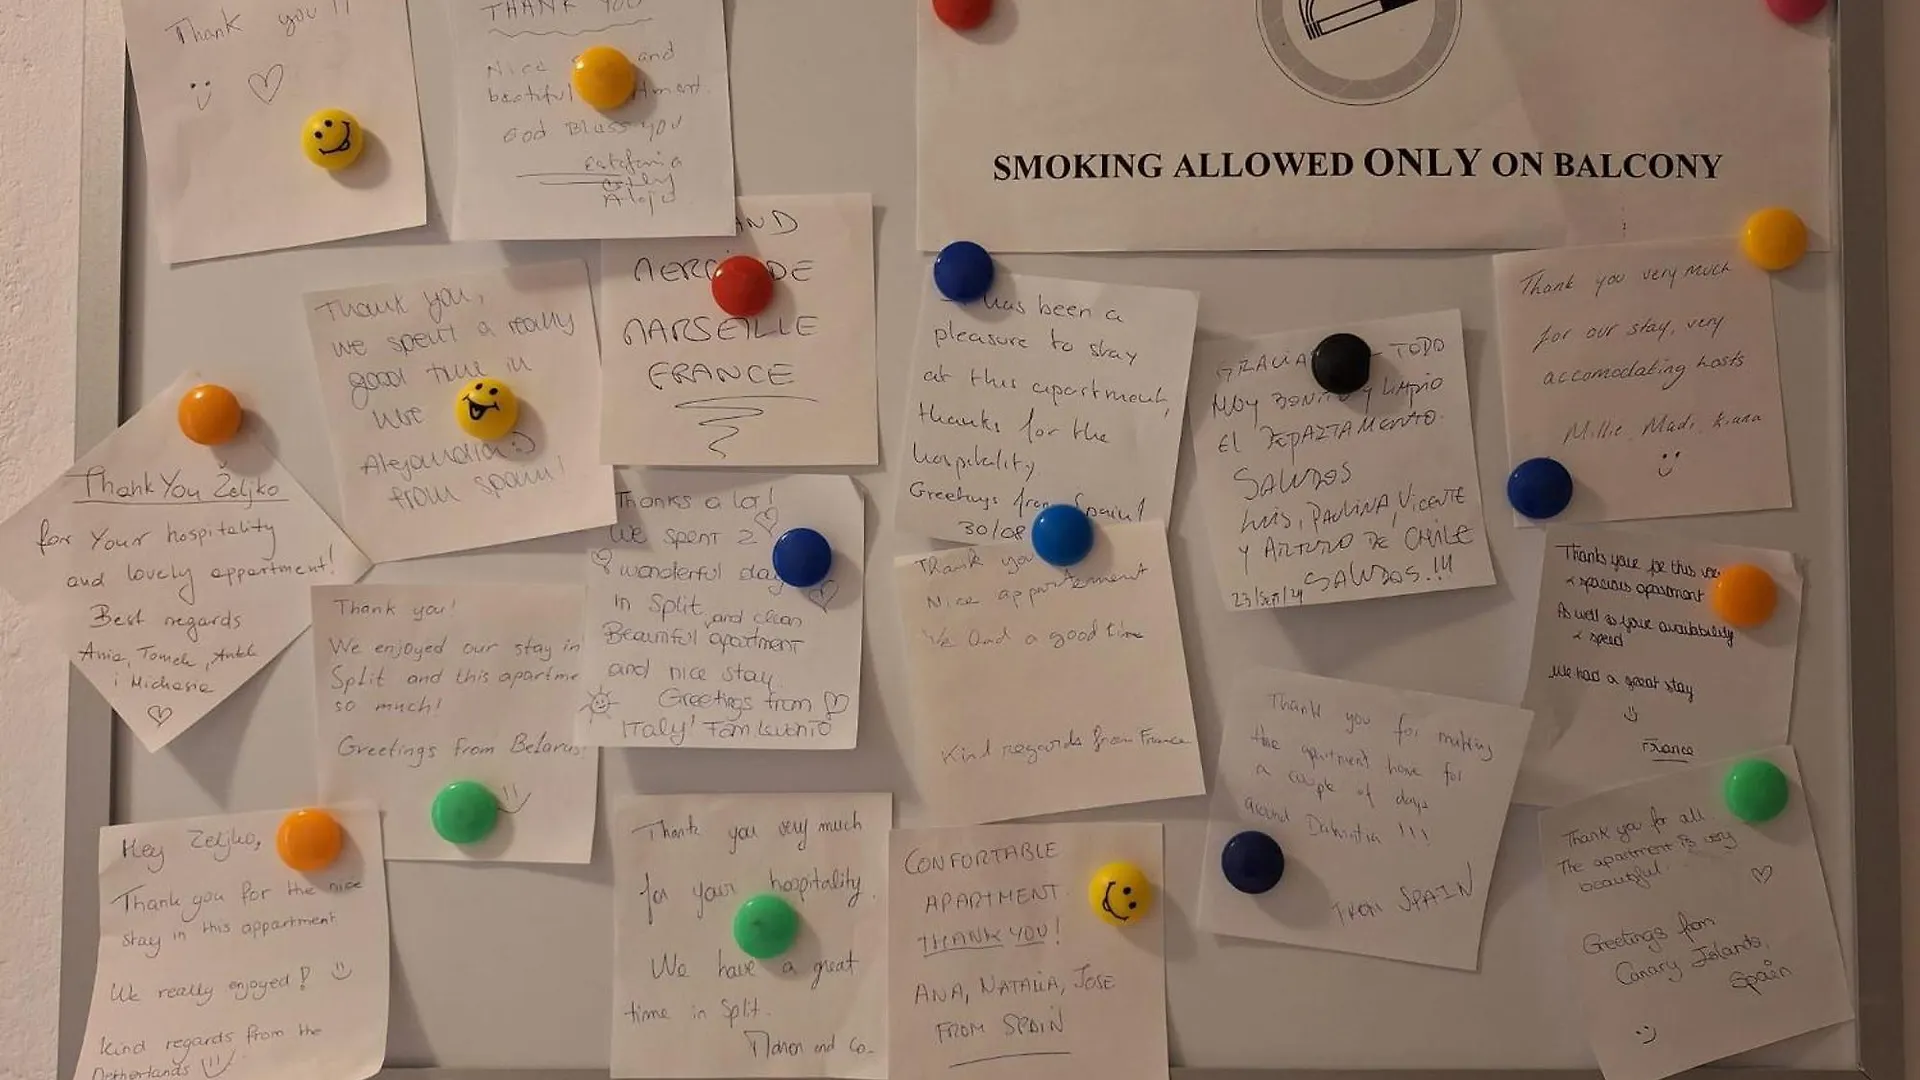 Thank you !!
THANK YOU
Nice and
beautiful
God Bless you
SMOKING ALLOWED ONLY ON BALCONY
AND
DE
MARSEILLE
FRANCE
Thank you,
we spent a really
good time in
Alejandra :)
from Spain!
has been a
pleasure to stay
at this apartment,
thanks for the
hospitality.
Greetings from Spain!
30/08
TODO
MUY BONITO Y LIMPIO
EL DEPARTAMENTO.
SALUDOS
LUIS, PAULINA, VICENTE
Y ARTURO DE CHILE
SALUDOS!!!
Thank you very much
for our stay, very
accomodating hosts
Millie, Madi, Kiana
Thank You Željko
for Your hospitality
and lovely appartment!
Best regards
Ania, Tomek, Antek
i Michasia
Thank you!
We enjoyed our stay in
Split and this apartme
so much!
Greetings from Belarus
Thanks a lot!
We spent 2
wonderful day
in Split and clean
Beautiful apartment
and nice stay
Greetings from
Italy!
Thank you
Nice appartement
We had a good time
Kind regards from France
& spacious apartment
As well as your availability
& speed
We had a great stay
France
Thank you for making
the apartment home for
a couple of days
around Dalmatia !!!
FROM SPAIN
Thank you for all.
The apartment is very
beautiful.
Greetings from
Canary Islands,
Spain
Hey Zeljko,
Thank you for the nice
stay in this appartment
We really enjoyed!
kind regards from the
Netherlands
Thank you very much
for your hospitality.
We have a great
time in Split.
and Co.
CONFORTABLE
APARTMENT
THANK YOU!
ANA, NATALIA, JOSE
FROM SPAIN